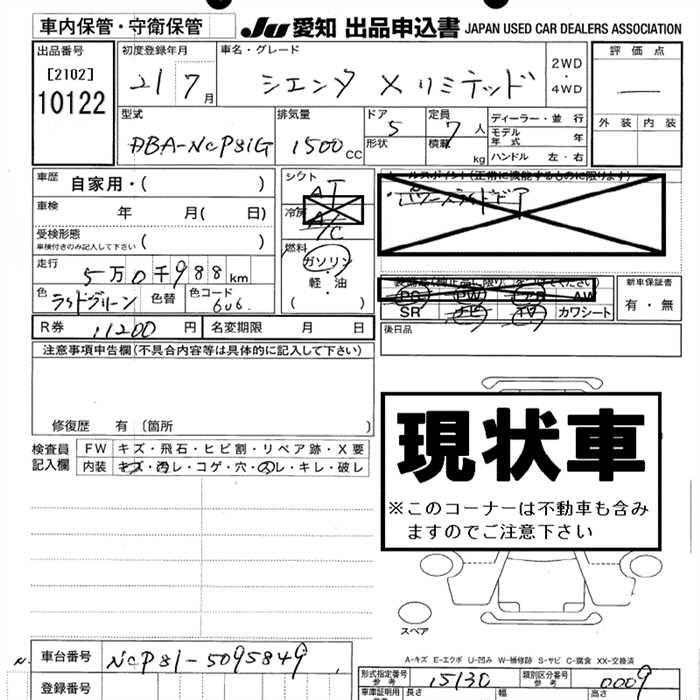 車内保管・守衛保管 JU 愛知 出品申込書 JAPAN USED CAR DEALERS ASSOCIATION
出品番号 初度登録年月 車名・グレード 評価点
[2102] 21 7月 シエンタ Xリミテッド 2WD・4WD —
10122
型式 排気量 ドア 5 定員 7人 ディーラー・並行 外装 内装
DBA-NCP81G 1500cc 形状 積載 kg モデル年式 年
ハンドル 左・右
車歴 自家用・( ) シフト AT セールスポイント(正常に機能するものに限ります)
車検 年 月( 日) 冷房 A/C パワースライドドア
受検形態
車検付きのみ記入して下さい ( ) 燃料
走行 5万0千988km ガソリン・軽・油( )
色 色替 色コード 606 PS PW AW 新車保証書
SR カワシート 有・無
R券 11200円 名変期限 月 日 後日品
注意事項申告欄(不具合内容等は具体的に記入して下さい)
修復歴 有(箇所 )
現状車
※このコーナーは不動車も含み
ますのでご注意下さい
検査員 FW キズ・飛石・ヒビ割・リペア跡・X要
記入欄 内装 キズ・汚レ・コゲ・穴・スレ・キレ・破レ
スペア
A-キズ E-エクボ U-凹み W-補修跡 S-サビ C-腐食 XX-交換済
車台番号 NCP81-5095849 型式指定番号 参考 15130 類別区分番号 参考 0009
登録番号 車庫証明用 参考 長さ 幅 高さ